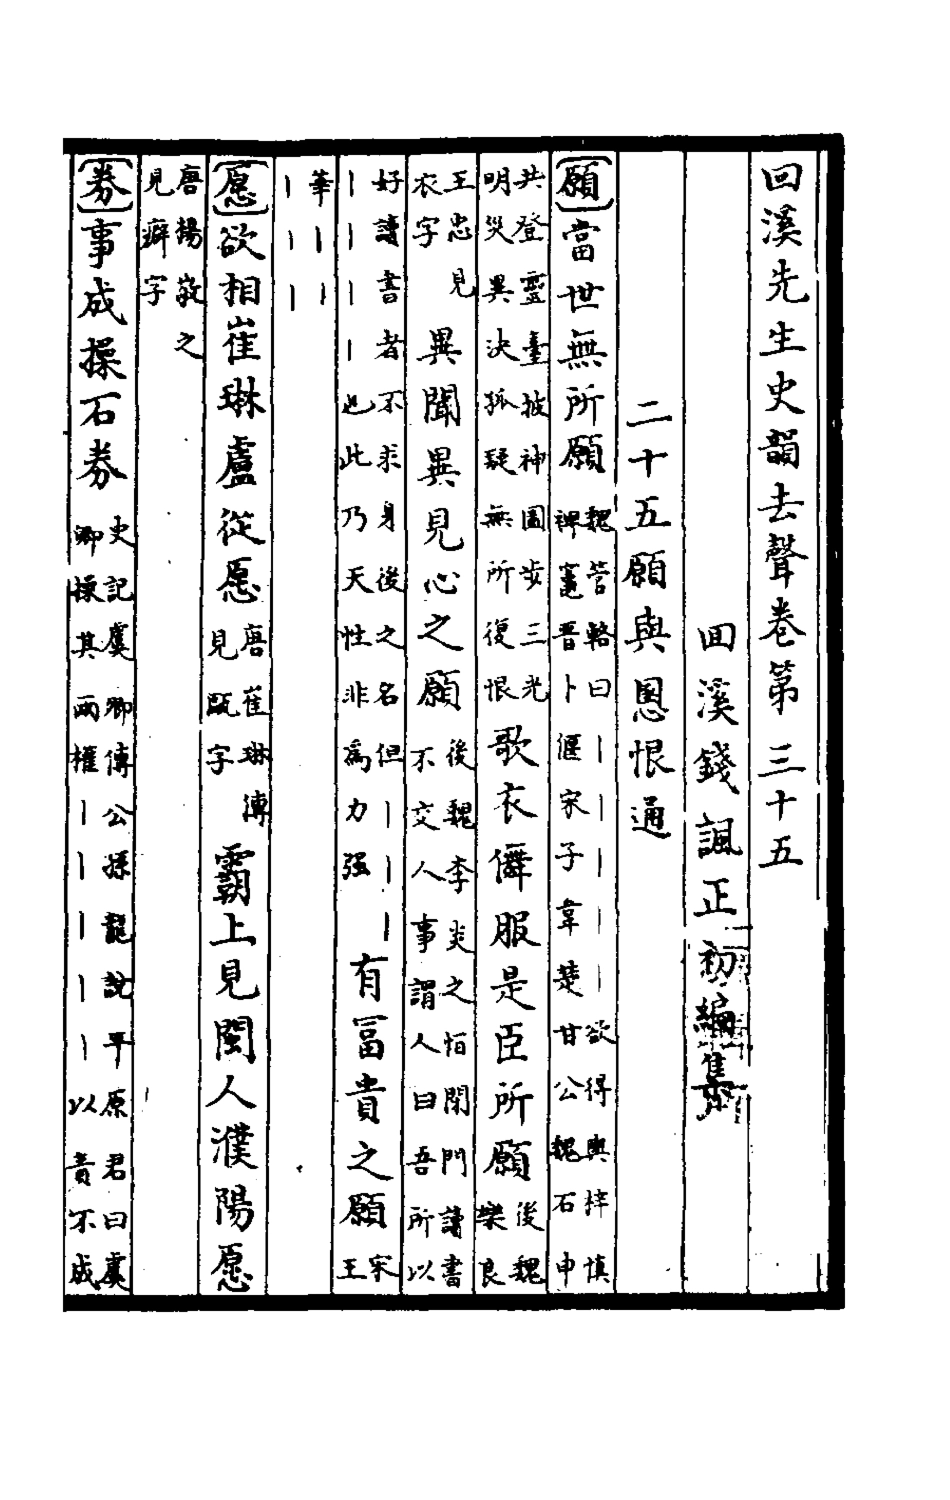 回溪先生史韻去聲卷第三十五
回溪錢諷正初編集
二十五願與慁恨通
願當世無所願魏管輅曰｜｜｜｜｜欲得與梓慎
裨竈晉卜偃宋子韋楚甘公魏石申
共登靈臺披神圖步三光
明災異決狐疑無所復恨歌衣僲服是臣所願後魏
樂良
王忠見
衣字異聞異見心之願後魏李炎之恒閉門讀書
不交人事謂人曰吾所以
好讀書者不求身後之名但｜｜｜
｜｜｜｜也此乃天性非為力强有冨貴之願宋
王
華｜｜
｜｜｜
愿欲相崔琳盧從愿唐崔琳傳
見甌字霸上見閩人濮陽愿
唐揚敬之
見癖字
券事成操石券史記虞卿傳公孫龍說平原君曰虞
卿操其兩權｜｜｜｜｜以責不成